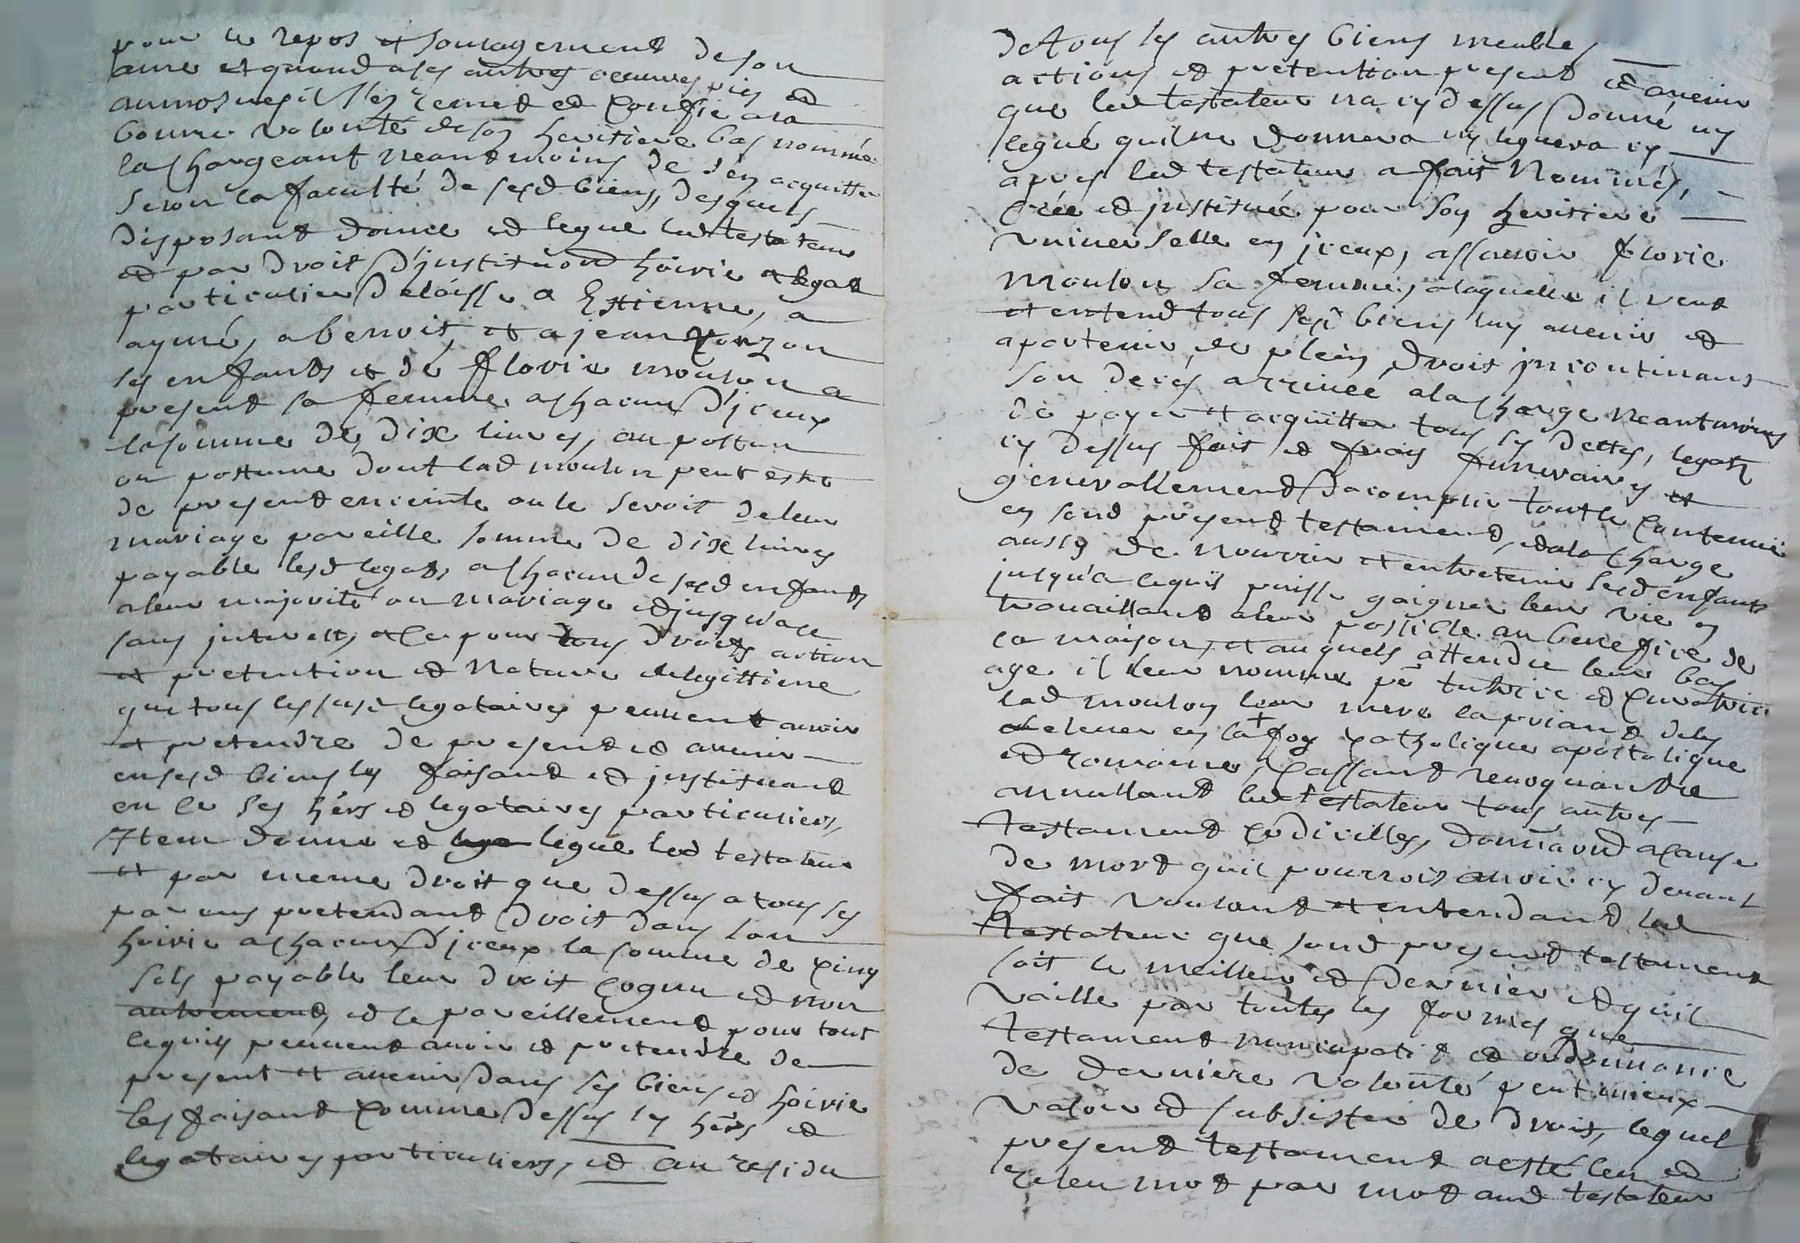 pour le repos et soulagement de son
ame et quand a ses autres oeuvres pies et
aumosnes il s'en remet et confie a la
bonne volonté de son heritiere bas nommée
la chargeant neantmoins de s'en acquitter
selon la faculté de sesd biens, desquels
disposant donne et legue led testateur
et par droit d'jnstitution hoirie et legat
particulier delaisse a Estienne, a
aymé, a benoit, et a jean
ses enfants et de florie moulon a
present sa femme, a chacun d'jceux
la somme de dix livres, au postum
ou postume dont lad moulon peut estre
de present enceinte ou le seroit de leur
mariage pareille somme de dix livres
payable lesd legats a chacun de sesd enfants
a leur majorité ou mariage et jusqu'a ce
sans jnterest, et ce pour tous droits action
et pretention et nature de legittime
que tous les susd legataires peuvent avoir
et pretendre de present et avenir
en sesd biens les faisant et jnstituant
en ce ses hers et legataires particuliers,
Item donne et legué led testateur
et par meme droit que dessus a tous ses
parens pretendant droit dans son
hoirie a chacun d'jceux la somme de cinq
sols payable leur droit cognu et non
autrement, et ce pareillement pour tout
ce quils peuvent avoir et pretendre de
present et avenir dans ses biens et hoirie
les faisant comme dessus ses hers et
legataires particuliers, et au residu
de tous ses autres biens meubles
actions et pretention present et avenir
que led testateur na cy dessus donné ny
legué quil ne donnera ny leguera cy
apres led testateur a fait nommés,
créé et jnstitué pour son heritiere
universelle en jceux, assavoir florie
moulon sa femme, a laquelle il veut
et entend tous sesd biens luy avenir et
apartenir de plein droit jncontinant
son deces arrivee a la charge neantmoins
de payer et acquitter tous ses dettes, legats
cy dessus fait et frais funeraires et
generallement d'acomplir tout le contenue
en sond present testament, et a la charge
aussy de nourrir et entretenir lesd enfants
jusqu'a ce quils puisse gaigner leur vie en
travaillant a leur possible au benefice de
la maison, et auquels attendu leur bas
age il leur nomme pr tutrice et curatrice
lad moulon leur mere la priant de les
elever en la foy catholique apostolique
et romaine, cassant revoquant et
annullant led testateur tous autres
testament codicilles, donnaond a cause
de mort quil pourrois avoir cy devant
fait voulant et entendant led
testateur que sond present testament
soit le meilleur et dernier et quil
vaille par toutes les formes que
testament nuncupatif et ordonnance
de derniere volonté peut mieux
valoir et subsister de droit, lequel
present testament a esté leu et
releu mot par mot aud testateur